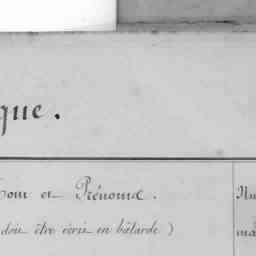 que.
Nom et Prénoms.
doit être écrit en bâtarde)